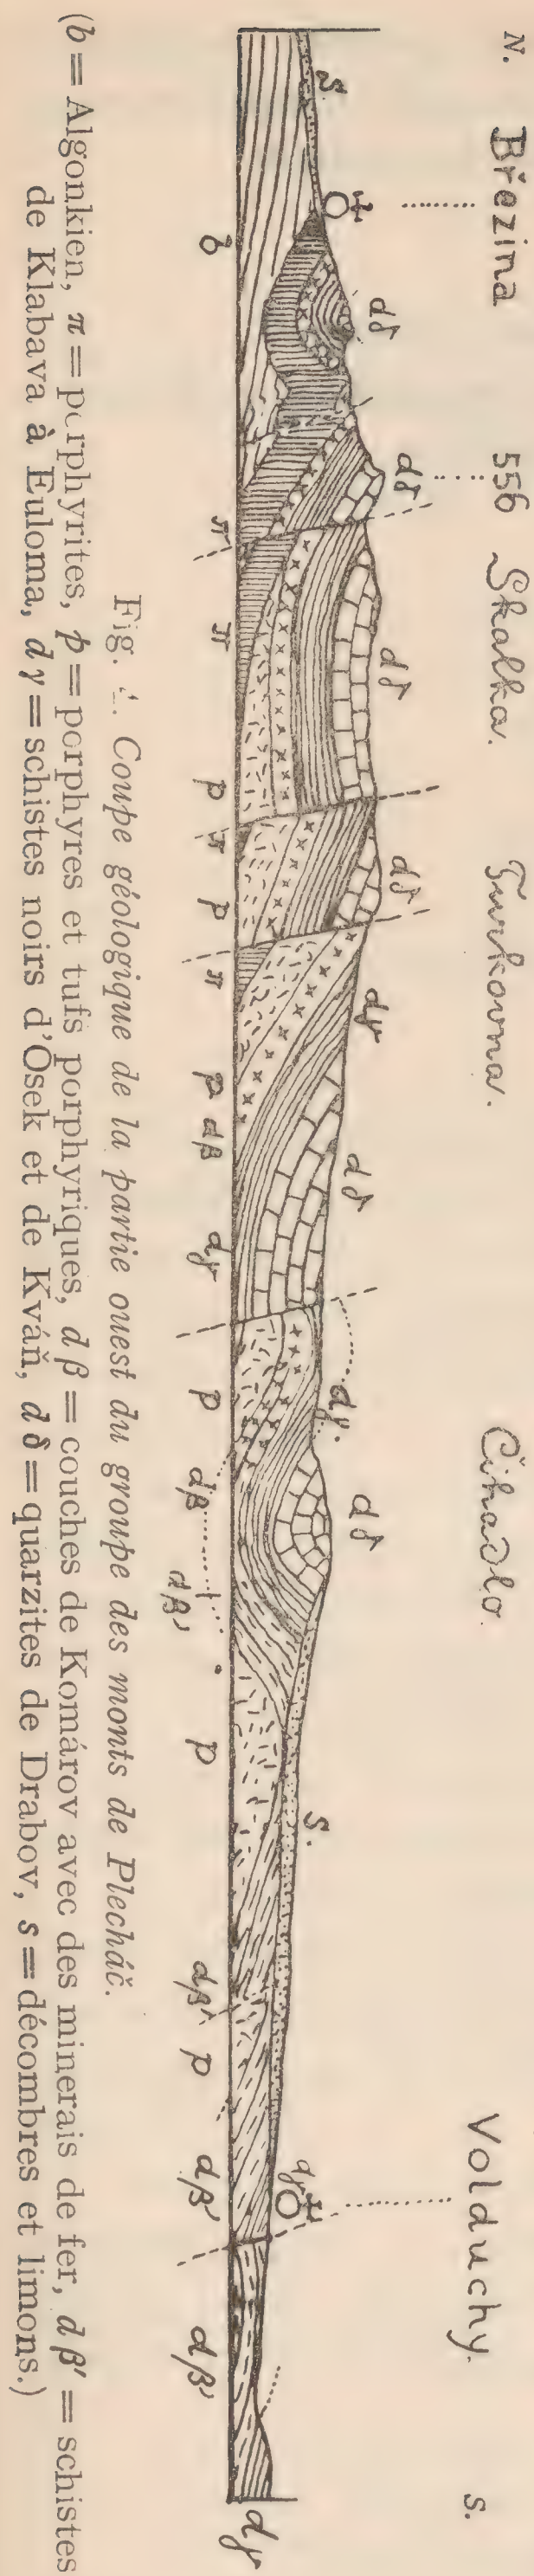 N. Březina 556 Skalka. Turkovna. Čihadlo. Volduchy. S.
s dδ dδ dδ dδ dγ dδ dγ. dδ s. dγ
b π π p π p π p dβ dγ p dβ dβ' p dβ' p dβ' dβ' dγ
Fig. Coupe géologique de la partie ouest du groupe des monts de Plecháč.
(b = Algonkien, π = porphyrites, p = porphyres et tufs porphyriques, dβ = couches de Komárov avec des minerais de fer, dβ' = schistes
de Klabava à Euloma, dγ = schistes noirs d'Osek et de Kváň, dδ = quarzites de Drabov, s = décombres et limons.)